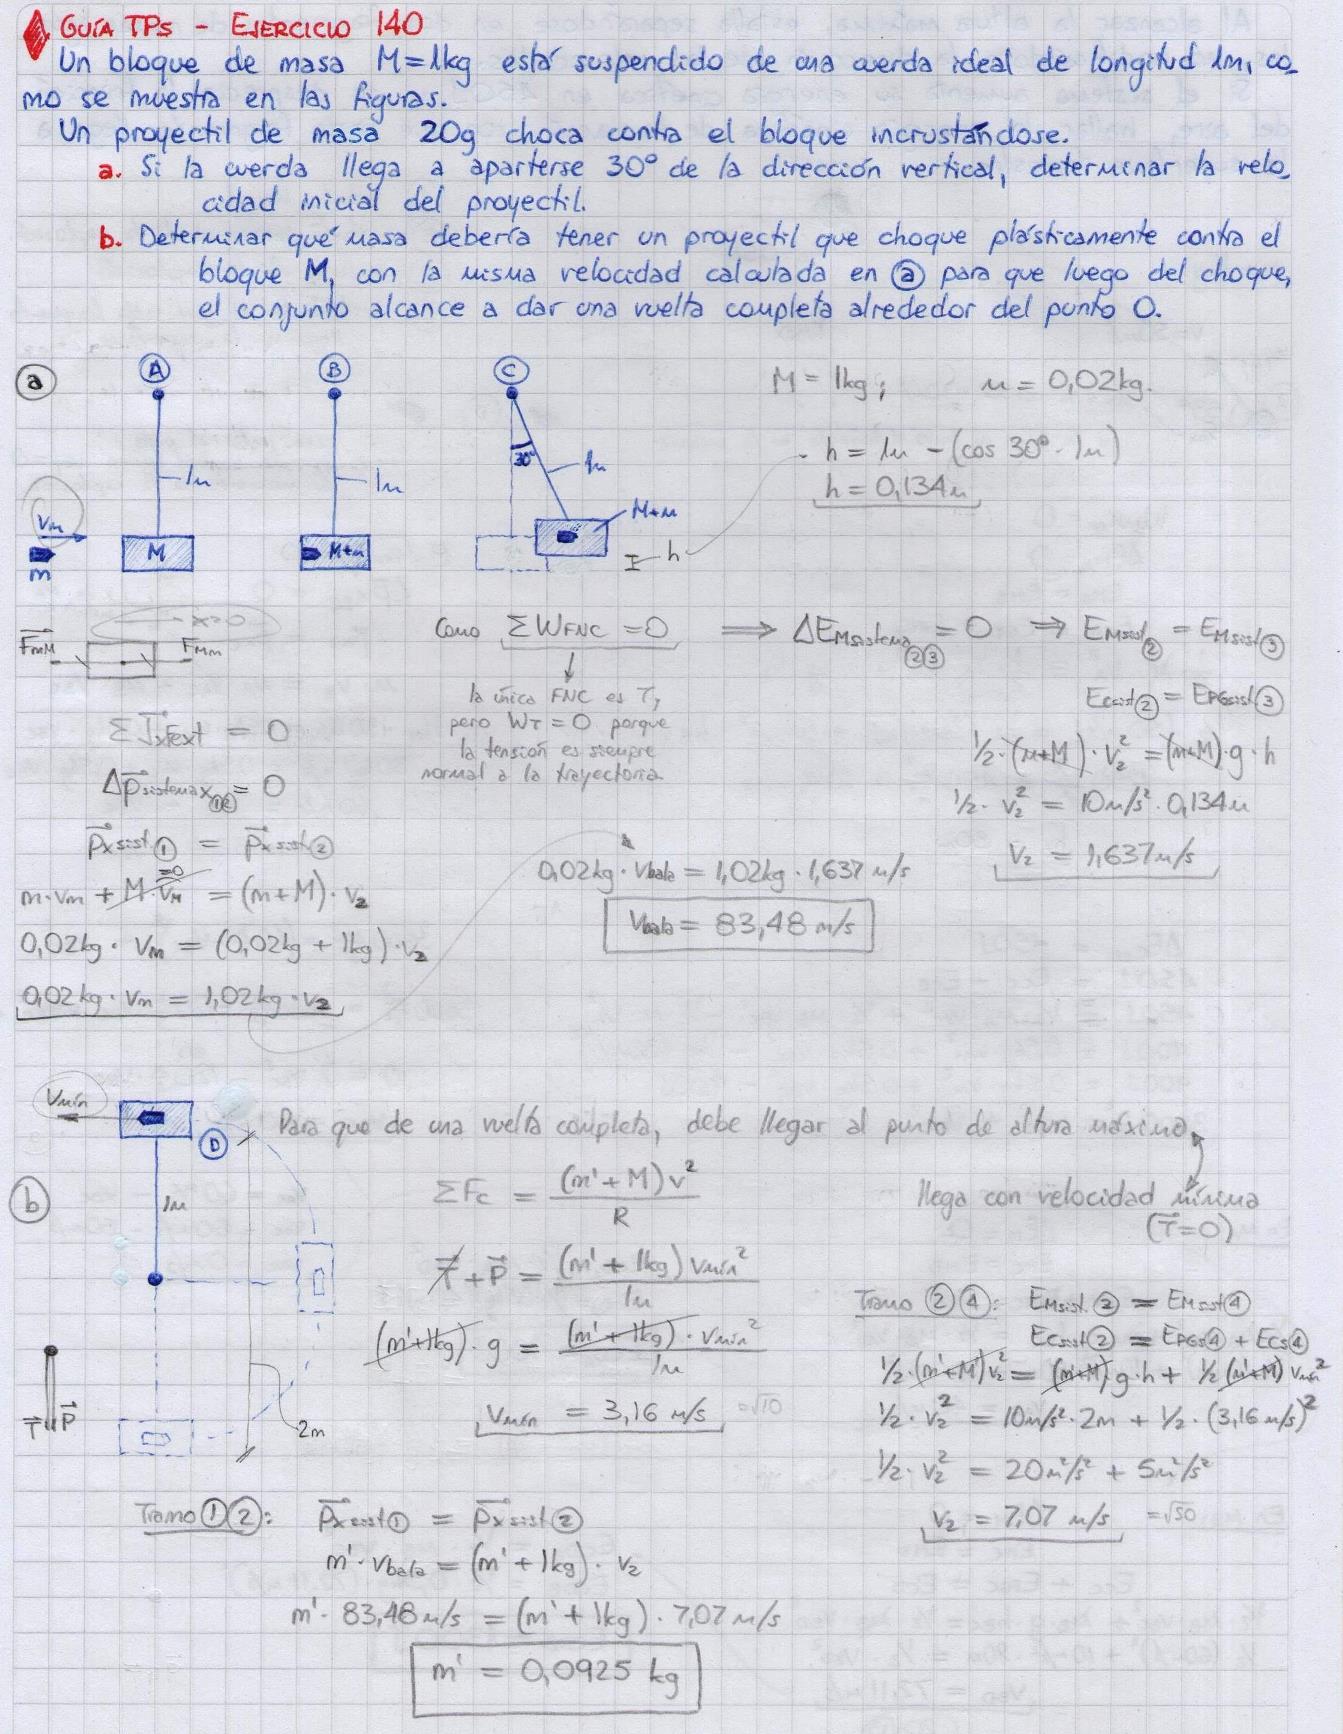 GUÍA TPs - EJERCICIO 140
Un bloque de masa M=1kg está suspendido de una cuerda ideal de longitud 1m, co_
mo se muestra en las figuras.
Un proyectil de masa 20g choca contra el bloque incrustándose.
a. Si la cuerda llega a aparterse 30° de la dirección vertical, determinar la velo_
cidad inicial del proyectil.
b. Determinar qué masa debería tener un proyectil que choque plásticamente contra el
bloque M, con la misma velocidad calculada en ⓐ para que luego del choque,
el conjunto alcance a dar una vuelta completa alrededor del punto O.
ⓐ
Ⓐ Ⓑ Ⓒ
M = 1kg; m = 0,02kg.
1m 1m 30° 1m
h = 1m - (cos 30° · 1m)
h = 0,134m
Vm
m M M+m M+m h
x=0
FmM FMm
ΣJxFext = 0
Δpsistemax①② = 0
pxsist.① = pxsist②
m·vm + M·vM = (m+M)·v2
=0
0,02kg · vm = (0,02kg + 1kg)·v2
0,02kg · vm = 1,02kg · v2
Como ΣWFNC = 0 ⟹ ΔEMsistema②③ = 0 ⟹ EMsist② = EMsist③
la única FNC es T,
pero WT = 0 porque
la tensión es siempre
normal a la trayectoria.
Ecsist② = EPGsist③
1/2·(m+M)·v2² = (m+M)·g·h
1/2 · v2² = 10m/s² · 0,134m
V2 = 1,637m/s
0,02kg · Vbala = 1,02kg · 1,637 m/s
Vbala = 83,48 m/s
ⓑ
Vmín
Ⓓ
1m
2m
T P
Para que de una vuelta completa, debe llegar al punto de altura máximo.
llega con velocidad mínima
(T=0)
ΣFc = (m'+M)v² / R
T + P = (m'+1kg) vmín² / 1m
(m'+1kg)·g = (m'+1kg)·vmín² / 1m
Vmín = 3,16 m/s =√10
Tramo ②④: EMsist.② = EMsist④
Ecsist② = EPGs④ + Ecs④
1/2·(m'+M)v2² = (m'+M)g·h + 1/2(m'+M) vmín²
1/2 · v2² = 10m/s² · 2m + 1/2 · (3,16 m/s)²
1/2 · v2² = 20m²/s² + 5m²/s²
V2 = 7,07 m/s =√50
Tramo①②: pxsist① = pxsist②
m' · vbala = (m' + 1kg) · v2
m' · 83,48m/s = (m' + 1kg) · 7,07 m/s
m' = 0,0925 kg